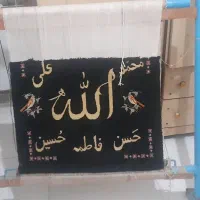 محمد علی
الله
حسن فاطمه حسین